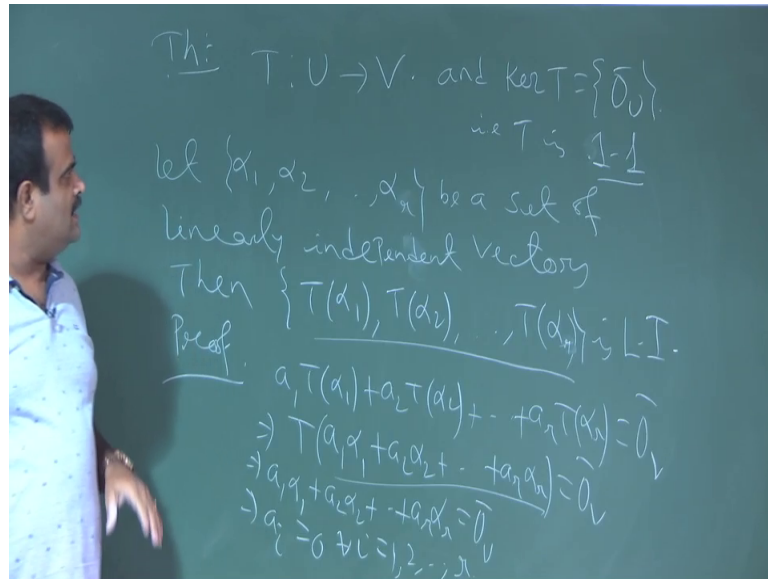 Th: T : U → V. and ker T = {0̄_U}.
i.e T is 1-1
let {α₁, α₂, .., αᵣ} be a set of
linearly independent vectors
Then {T(α₁), T(α₂), .., T(αᵣ)} is L.I.
Proof.
a₁T(α₁)+a₂T(α₂)+...+aᵣT(αᵣ) = 0̄_V
⇒ T(a₁α₁+a₂α₂+..+aᵣαᵣ) = 0̄_V
⇒ a₁α₁+a₂α₂+..+aᵣαᵣ = 0̄_U
⇒ aᵢ = 0 ∀ i = 1, 2, .., r